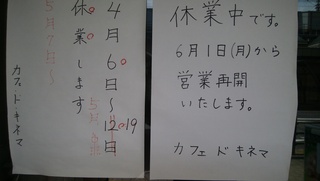 休業中です。
6月1日(月)から
営業再開
いたします。
カフェ ド キネマ
4月6日〜12日
19
休業します
5月7日〜
カフェ ド キネマ